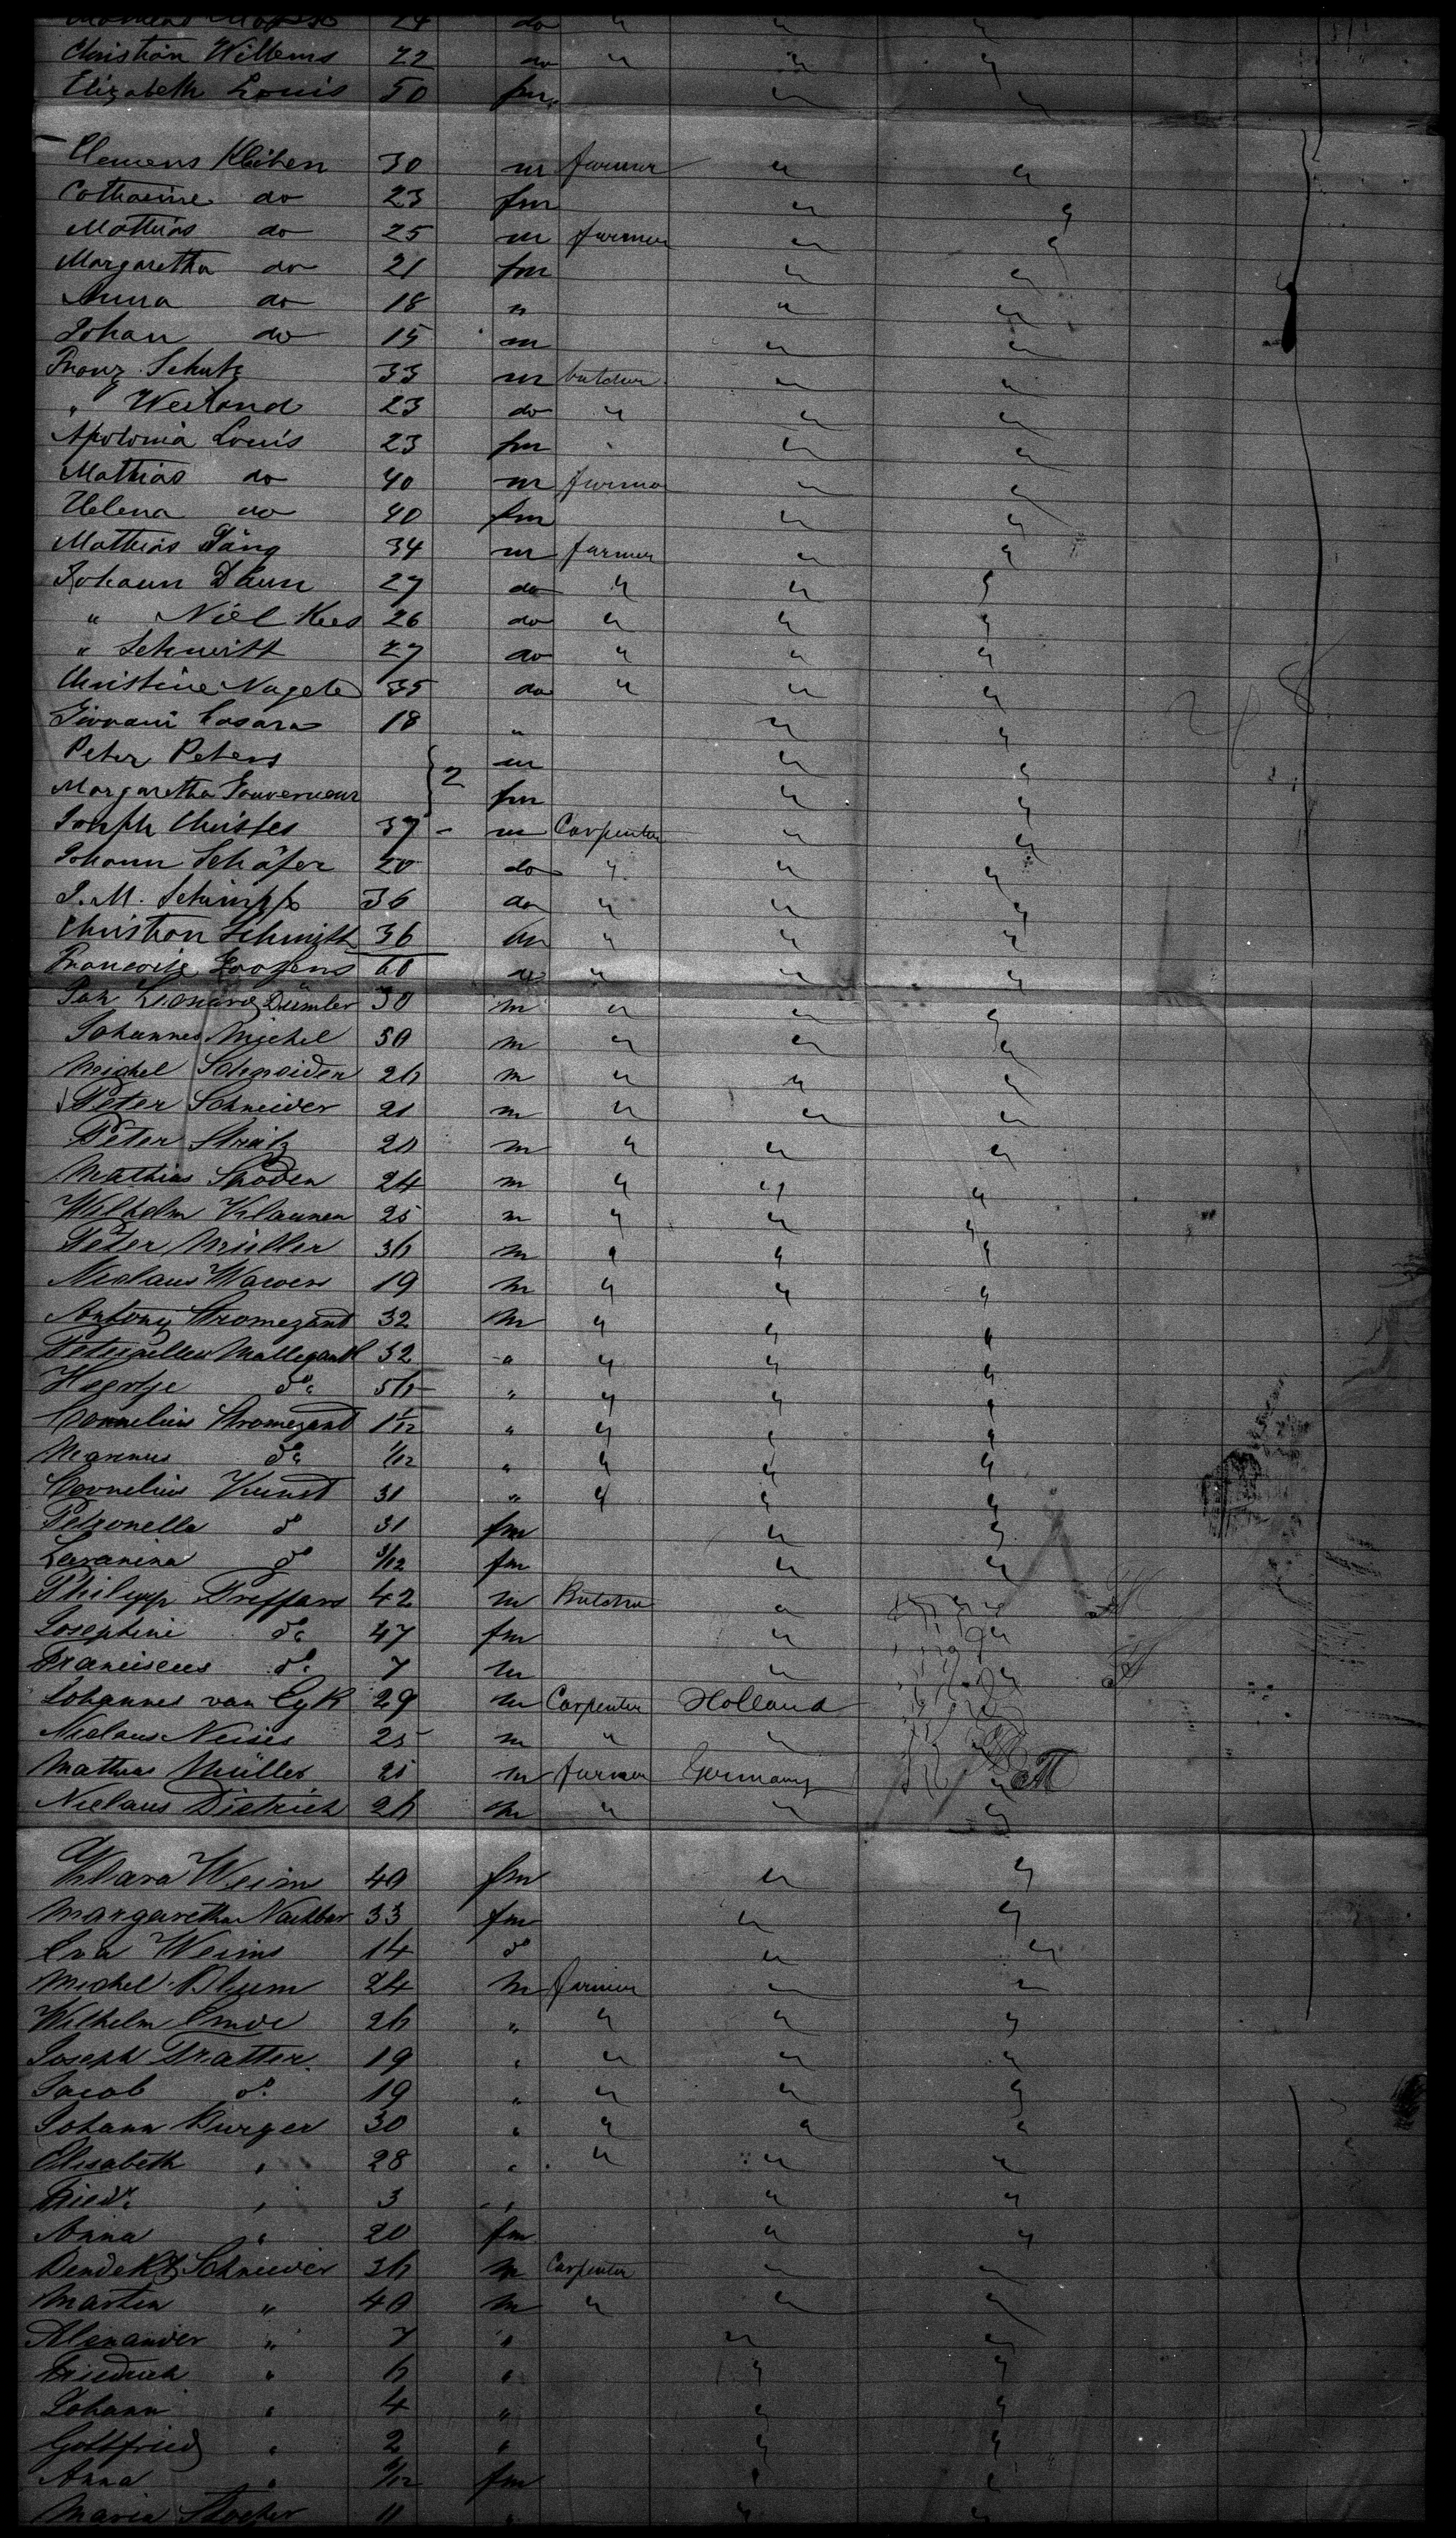 24 do " " "
Christian Willems 22 do " " "
Elizabeth Louis 50 fm " "
Clemens 30 m farmer " "
Catharine do 23 fm " "
Mathias do 25 m farmer " "
Margaretha do 21 fm " "
Anna do 18 " " "
Johan do 15 m " "
Franz Schutz 33 m butcher " "
" Weiland 23 do " " "
Apolonia Louis 23 fm " "
Mathias do 40 m farmer " "
Helena do 40 fm " "
Mathias 34 m farmer " "
Johann Daun 27 do " " "
" Niel Kees 26 do " " "
" Schmitt 27 do " " "
Christine 35 do " " "
Giovani Casara 18 " " "
Peter Peters 2 m " "
Margaretha Gouverneur fm " "
Joseph Christes 37 - m Carpenter " "
Johann Schäfer 20 do " " "
J. M. Schimpf 36 do " " "
Christian Schmitt 36 m " " "
60 do " " "
Joh Leonard Dümler 30 m " " "
Johannes Michel 30 m " " "
Michel Schneider 26 m " " "
Peter Schneider 21 m " " "
Peter m " " "
Mathias 24 m " " "
Wilhelm Klaunen 25 m " " "
Peter Müller 36 m " " "
Niclaus 19 m " " "
Antony Stromezand 32 m " " "
32 " " " "
do " " " "
Cornelius Stromezand 1 1/12 " " " "
Marinus do 1/12 " " " "
Cornelius Kunst 31 " " " "
Petronella do 31 fm " "
do 3/12 fm " "
Philipp Treffars 42 m Butcher " "
Josephine do 47 fm " "
Franciscus do 7 m " "
Johannes van Eyk 29 m Carpenter Holland "
Niclaus Neises 25 m " " "
Mathias Müller 21 m farmer Germany "
Niclaus Dietrich 26 m " " "
Klara Weims 40 fm " "
Margaretha Nachbar 33 fm " "
Eva Weims 14 do " "
Michel Blum 24 m farmer " "
Wilhelm Emde 26 " " " "
Joseph Tratter 19 " " " "
Jacob do 19 " " " "
Johann Burger 30 " " " "
Elisabeth " 28 " " " "
Friedr. " 3 " " "
Anna " 20 fm " "
Schneider 36 m Carpenter " "
Martin " 40 m " " "
Alexander " 7 " " "
Friedrich " 6 " " "
Johann " 4 " " "
Gottfried " 2 " " "
Anna " fm " "
Maria 11 " " "